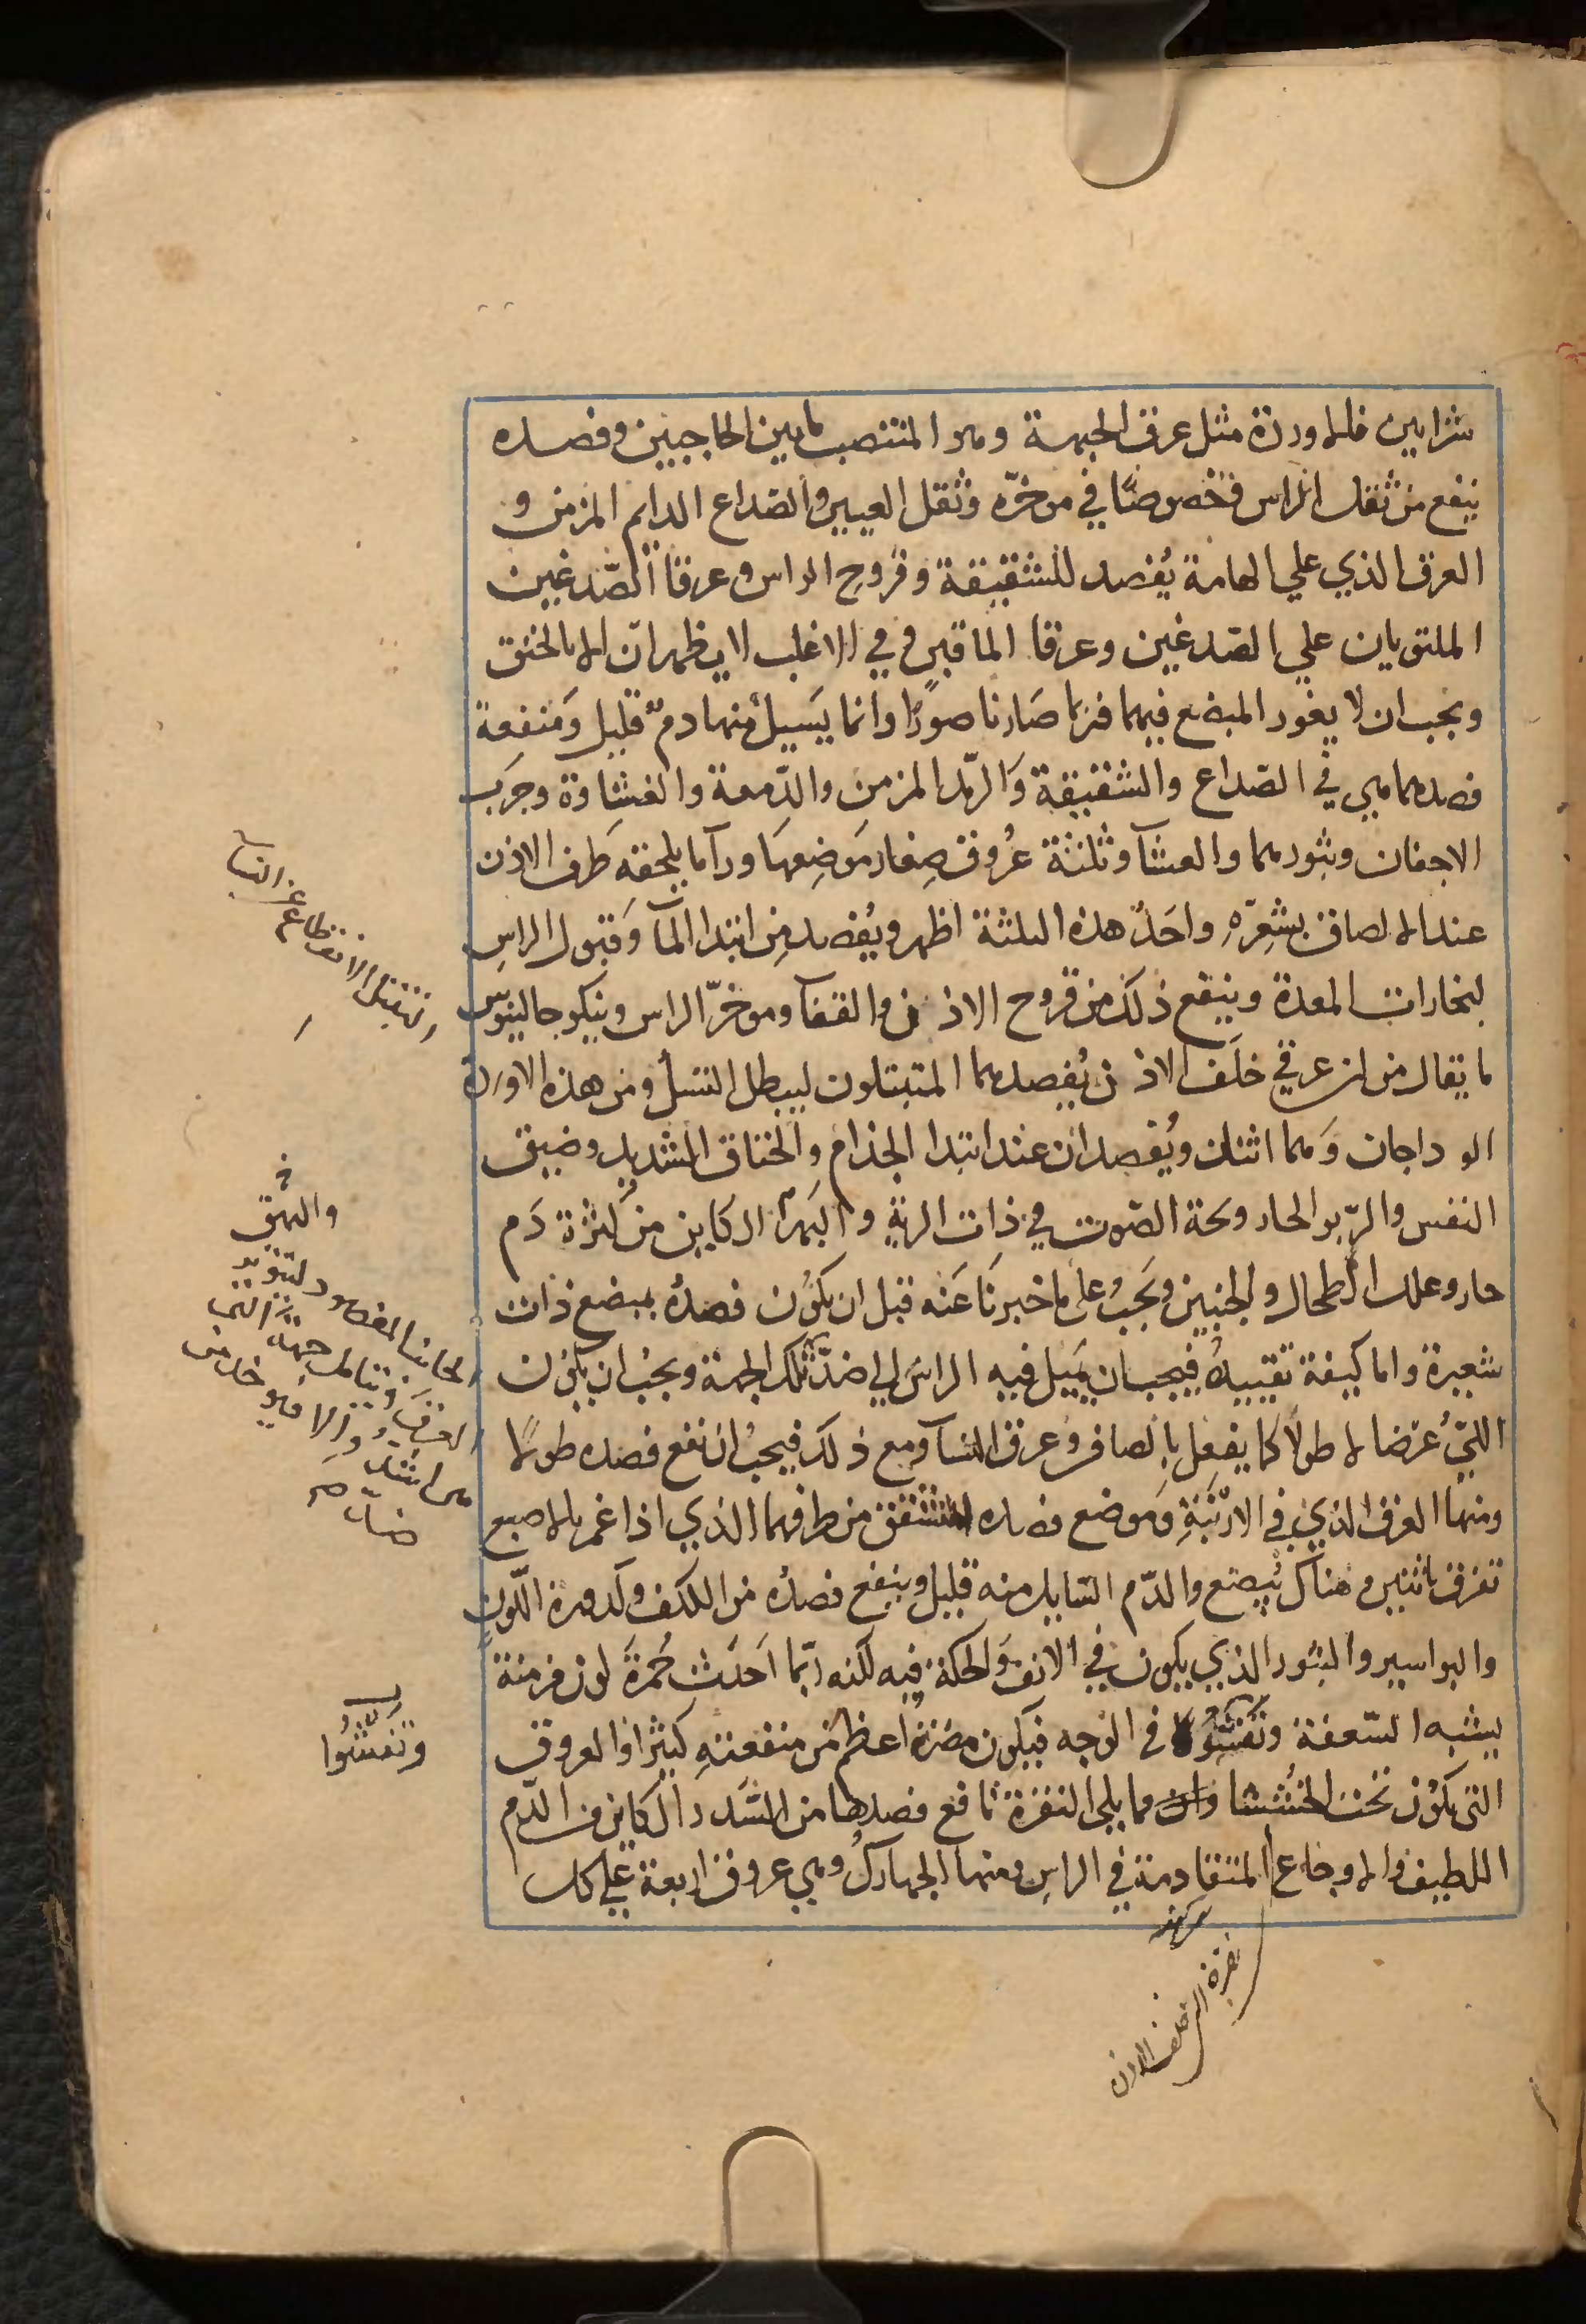 شرايين فالاوردة مثل عرق الجبهة وهو المنتصب مابين الحاجبين وفصده
ينفع من ثقل الراس فخصوصًا في موخّره وثقل العينين والصّداع الدايم المزمن و
العرق الذي علي الهامة يُفصد للشقيقة وقروح الراس وعرقا الصّدغين
الملتويان علي الصّدغين وعرقا الماقين وفي الاغلب لا يظهران الا بالخنق
ويجب ان لا يغور المبضع فيهما فربما صَارنا صورًا وانما يَسيل منهما دمٌ قليل وَمنفعة
فصدهما هي في الصّداع والشقيقة وَالرّمد المزمن والدّمعة والغشاوة وجرَب
الاجفان وبثورهما والعشآ وثلثة عُروق صِغار مَوضِعهَا ورآ ما يلحقه طَرف الاذن
عند الالصاق بشعِرّهِ واحَدُ هذه الثلثة اظهر ويُفصد مِن ابتدا المآ وَقبول الراسِ
لبخارات المعدة وينفع ذلك من قروح الاذن والقفآ وموخرّ الراس وينكر جالينوس
ما يقال من ان عرقي خلَف الاذن يُفصدهما المتبتلون ليبطل النسل ومن هذه الاورِدة
الوداجان وَهما اثنان ويُفصدان عند ابتدا الجذام والخناق الشديد وضيق
النفس والرّبو الحار وبحة الصّوت في ذات الرية والبَهَر الكاين من كثرة دَم
حار وعلل الطحال والجنبين ويَجبُ علي ما خبرنَا عَنه قبل ان يكوُن فصدهُ بمبضع ذات
شعيرة واما كيفة تقييدهُ فيجب ان يميل فيه الراسَ الي ضدّ تلك الجهة ويجبُ ان يكون
اللتي عُرضا لا طولًا كما يفعل بالصافن وعرق النسآ ومع ذلك فيجبُ ان نقع فصده طولًا
ومنها العرق الذي في الارنبَةِ ومَوضع فصده المتشقق من طرفهما الذي اذا غمز بالاصبع
تفرق باثنين وهناك يُبضع والدّم السّايل منه قليل وينفع فصدُه من الكلف وكدورة اللّون
والبواسير والبثور الذي يكون في الانف وَالحكة فيه لكنه ربّما اَحدَث حُمرةَ لون مزمنة
يشبه السّعفة وتفشوا في الوَجه فيكون مضرتهُ اعظم من منفعتهِ كثيرًا والعروق
التي يكوُن تحت الخُششا مما يلي النقرة نافع فصدها من السَّدد الكاين من الدّم
اللطيف والاوجاع المتقادمة في الراسِ ومنها الجهاركُ وهي عروق اربعة علي كل
التبتل الانقطاع عن النسا
خ
والبهق
وتفشُّوا
خلف الاذن